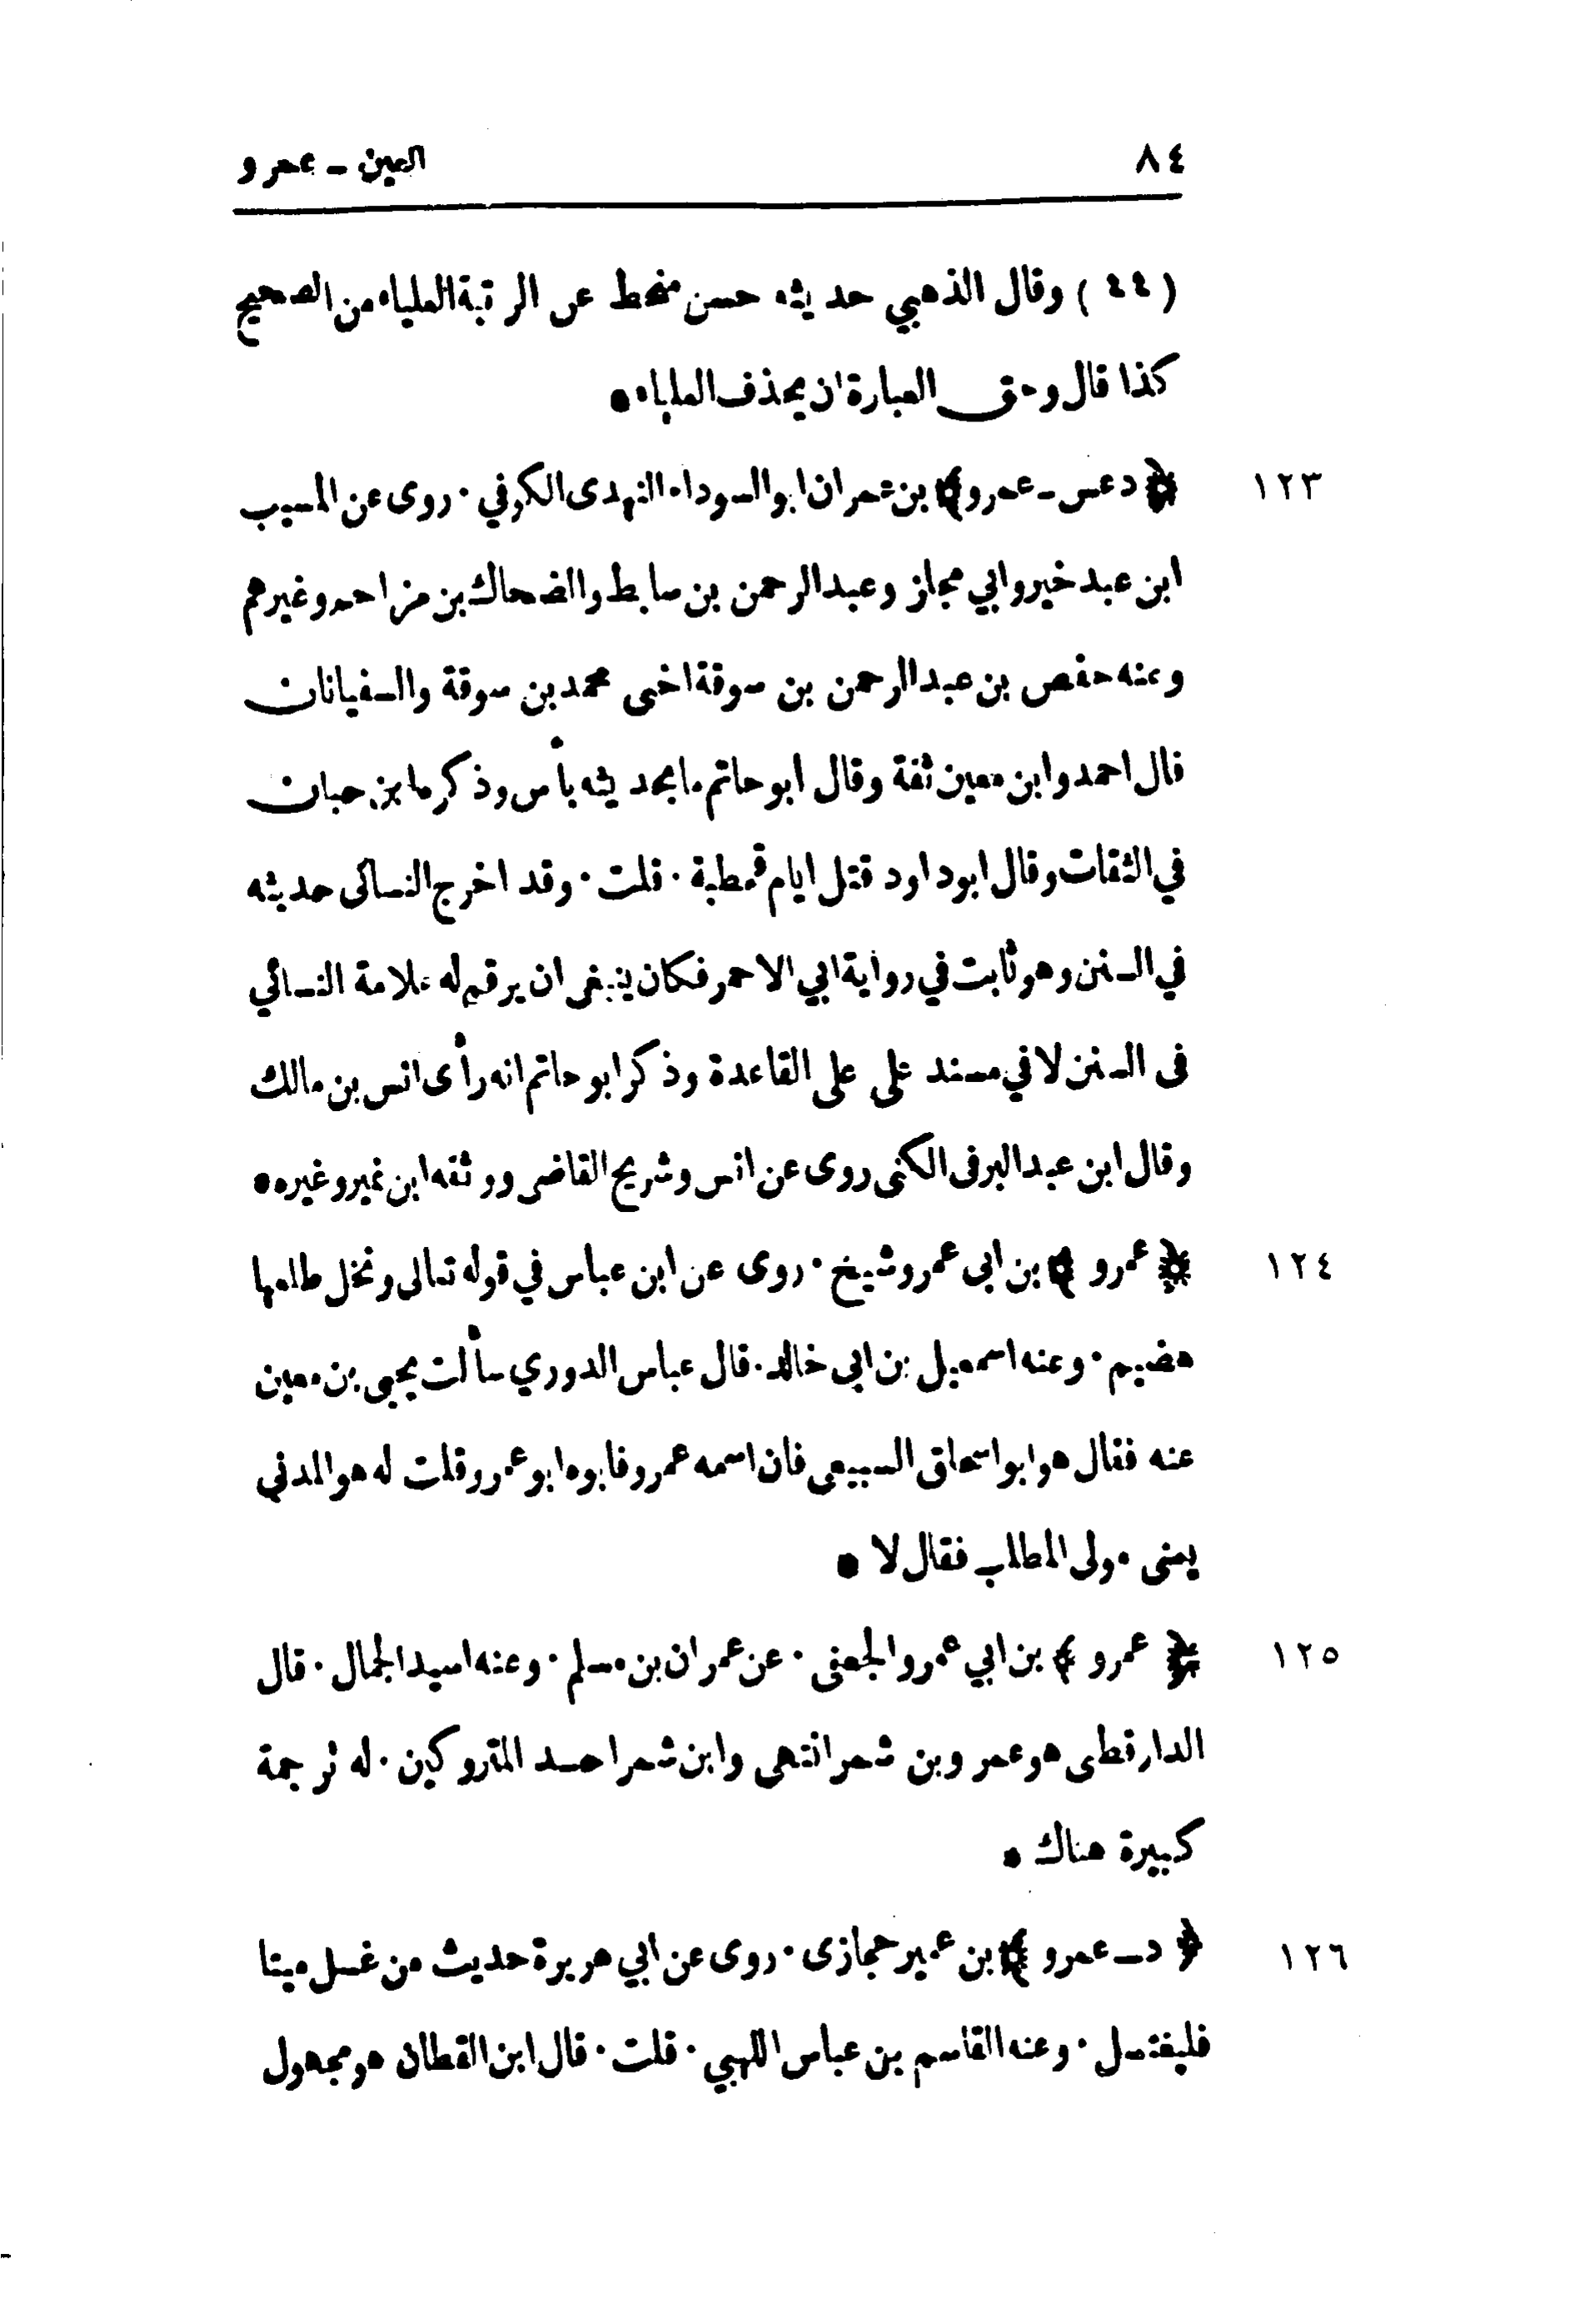 ٨٤
العين - عمرو
(٤٤) وقال الذهبي حديثه حسن منحط عن الرتبة العلياء من الصحيح
كذا قال وحق العبارة ان يحذف العلياء •
١٢٣ ﴿ د عس - عمرو ﴾ بن عمران ابوالسوداء النهدى الكوفي · روى عن المسيب
ابن عبد خير وابي مجلز وعبد الرحمن بن سابط والضحاك بن مزاحم وغيرهم
وعنه حفص بن عبد الرحمن بن سوقة اخى محمد بن سوقة والسفيانان
قال احمد وابن معين ثقة وقال ابو حاتم ما بحديثه بأس وذكره ابن حبان
في الثقات وقال ابو داود قتل ايام قحطبة · قلت · وقد اخرج النسائى حديثه
في السنن وهو ثابت في رواية ابي الاحمر فكان ينبغى ان يرقم له علامة النسائي
فى السنن لا في مسند على على القاعدة وذكر ابو حاتم انه رأى انس بن مالك
وقال ابن عبد البر فى الكنى روى عن انس وشريح القاضى ووثقه ابن نمير وغيره •
١٢٤ ﴿ عمرو ﴾ بن ابى عمرو شيخ · روى عن ابن عباس في قوله تعالى ونخل طلعها
هضيم · وعنه اسمعيل بن ابي خالد · قال عباس الدوري سألت يحيى بن معين
عنه فقال هو ابو اسحاق السبيعى فان اسمه عمرو فابوه ابو عمرو قلت له هو المدني
يعنى مولى المطلب فقال لا •
١٢٥ ﴿ عمرو ﴾ بن ابي عمرو الجعفى · عن عمران بن مسلم · وعنه اسيد الجمال · قال
الدارقطى هو عمرو بن شمر انتهى وابن شمر احد المتروكين · له ترجمة
كبيرة هناك •
١٢٦ ﴿ د - عمرو ﴾ بن عمير حجازى · روى عن ابي هريرة حديث من غسل ميتا
فليغتسل · وعنه القاسم بن عباس اللهبي · قلت · قال ابن القطان هو مجهول